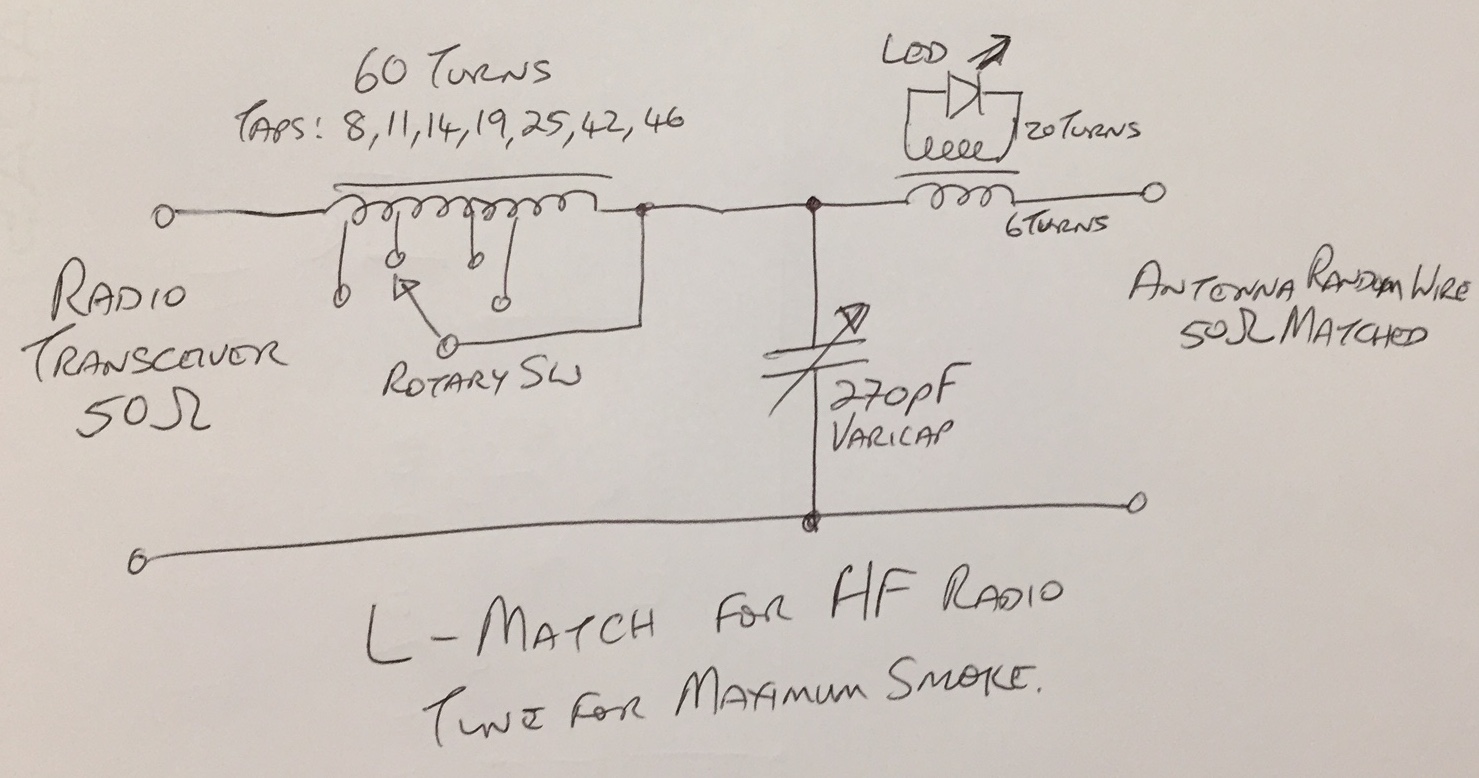 60 TURNS
TAPS: 8,11,14,19,25,42,46
LED
20 TURNS
6 TURNS
RADIO
TRANSCEIVER
50Ω
ROTARY SW
270pF
VARICAP
ANTENNA RANDOM WIRE
50Ω MATCHED
L-MATCH FOR HF RADIO
TUNE FOR MAXIMUM SMOKE.